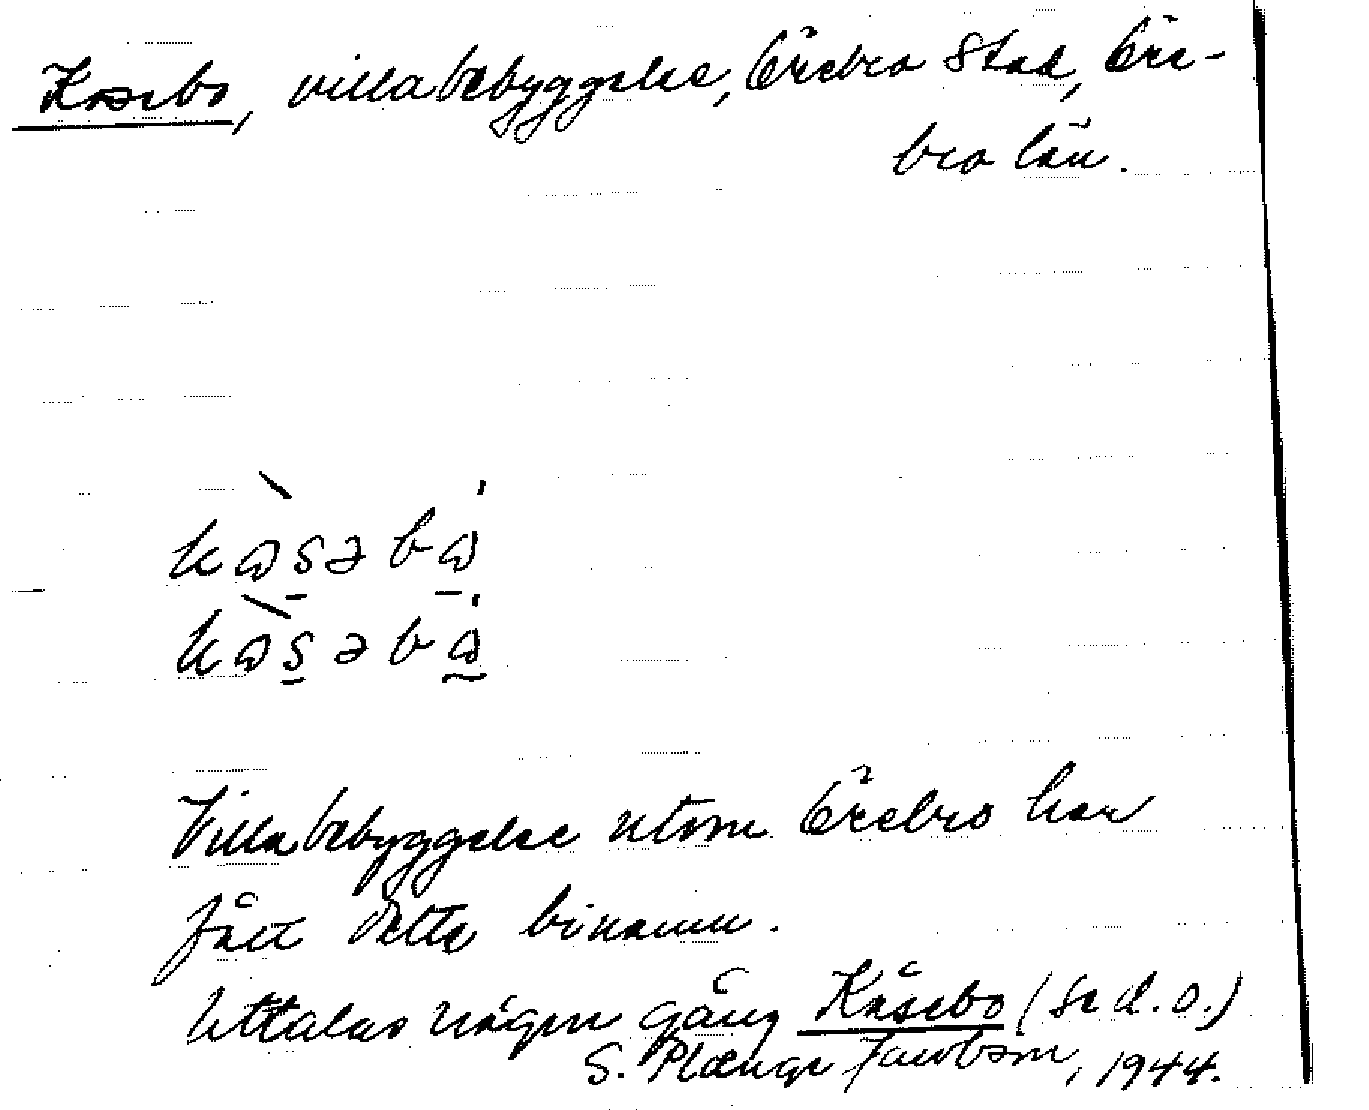 Kosebo, villabebyggelse, Örebro stad, Öre-
bro län.
Villabebyggelse utom Örebro har
fått detta binamn.
Uttalas någon gång Kåsebo (se d. o.)
S. Plænge Jacobson, 1944.